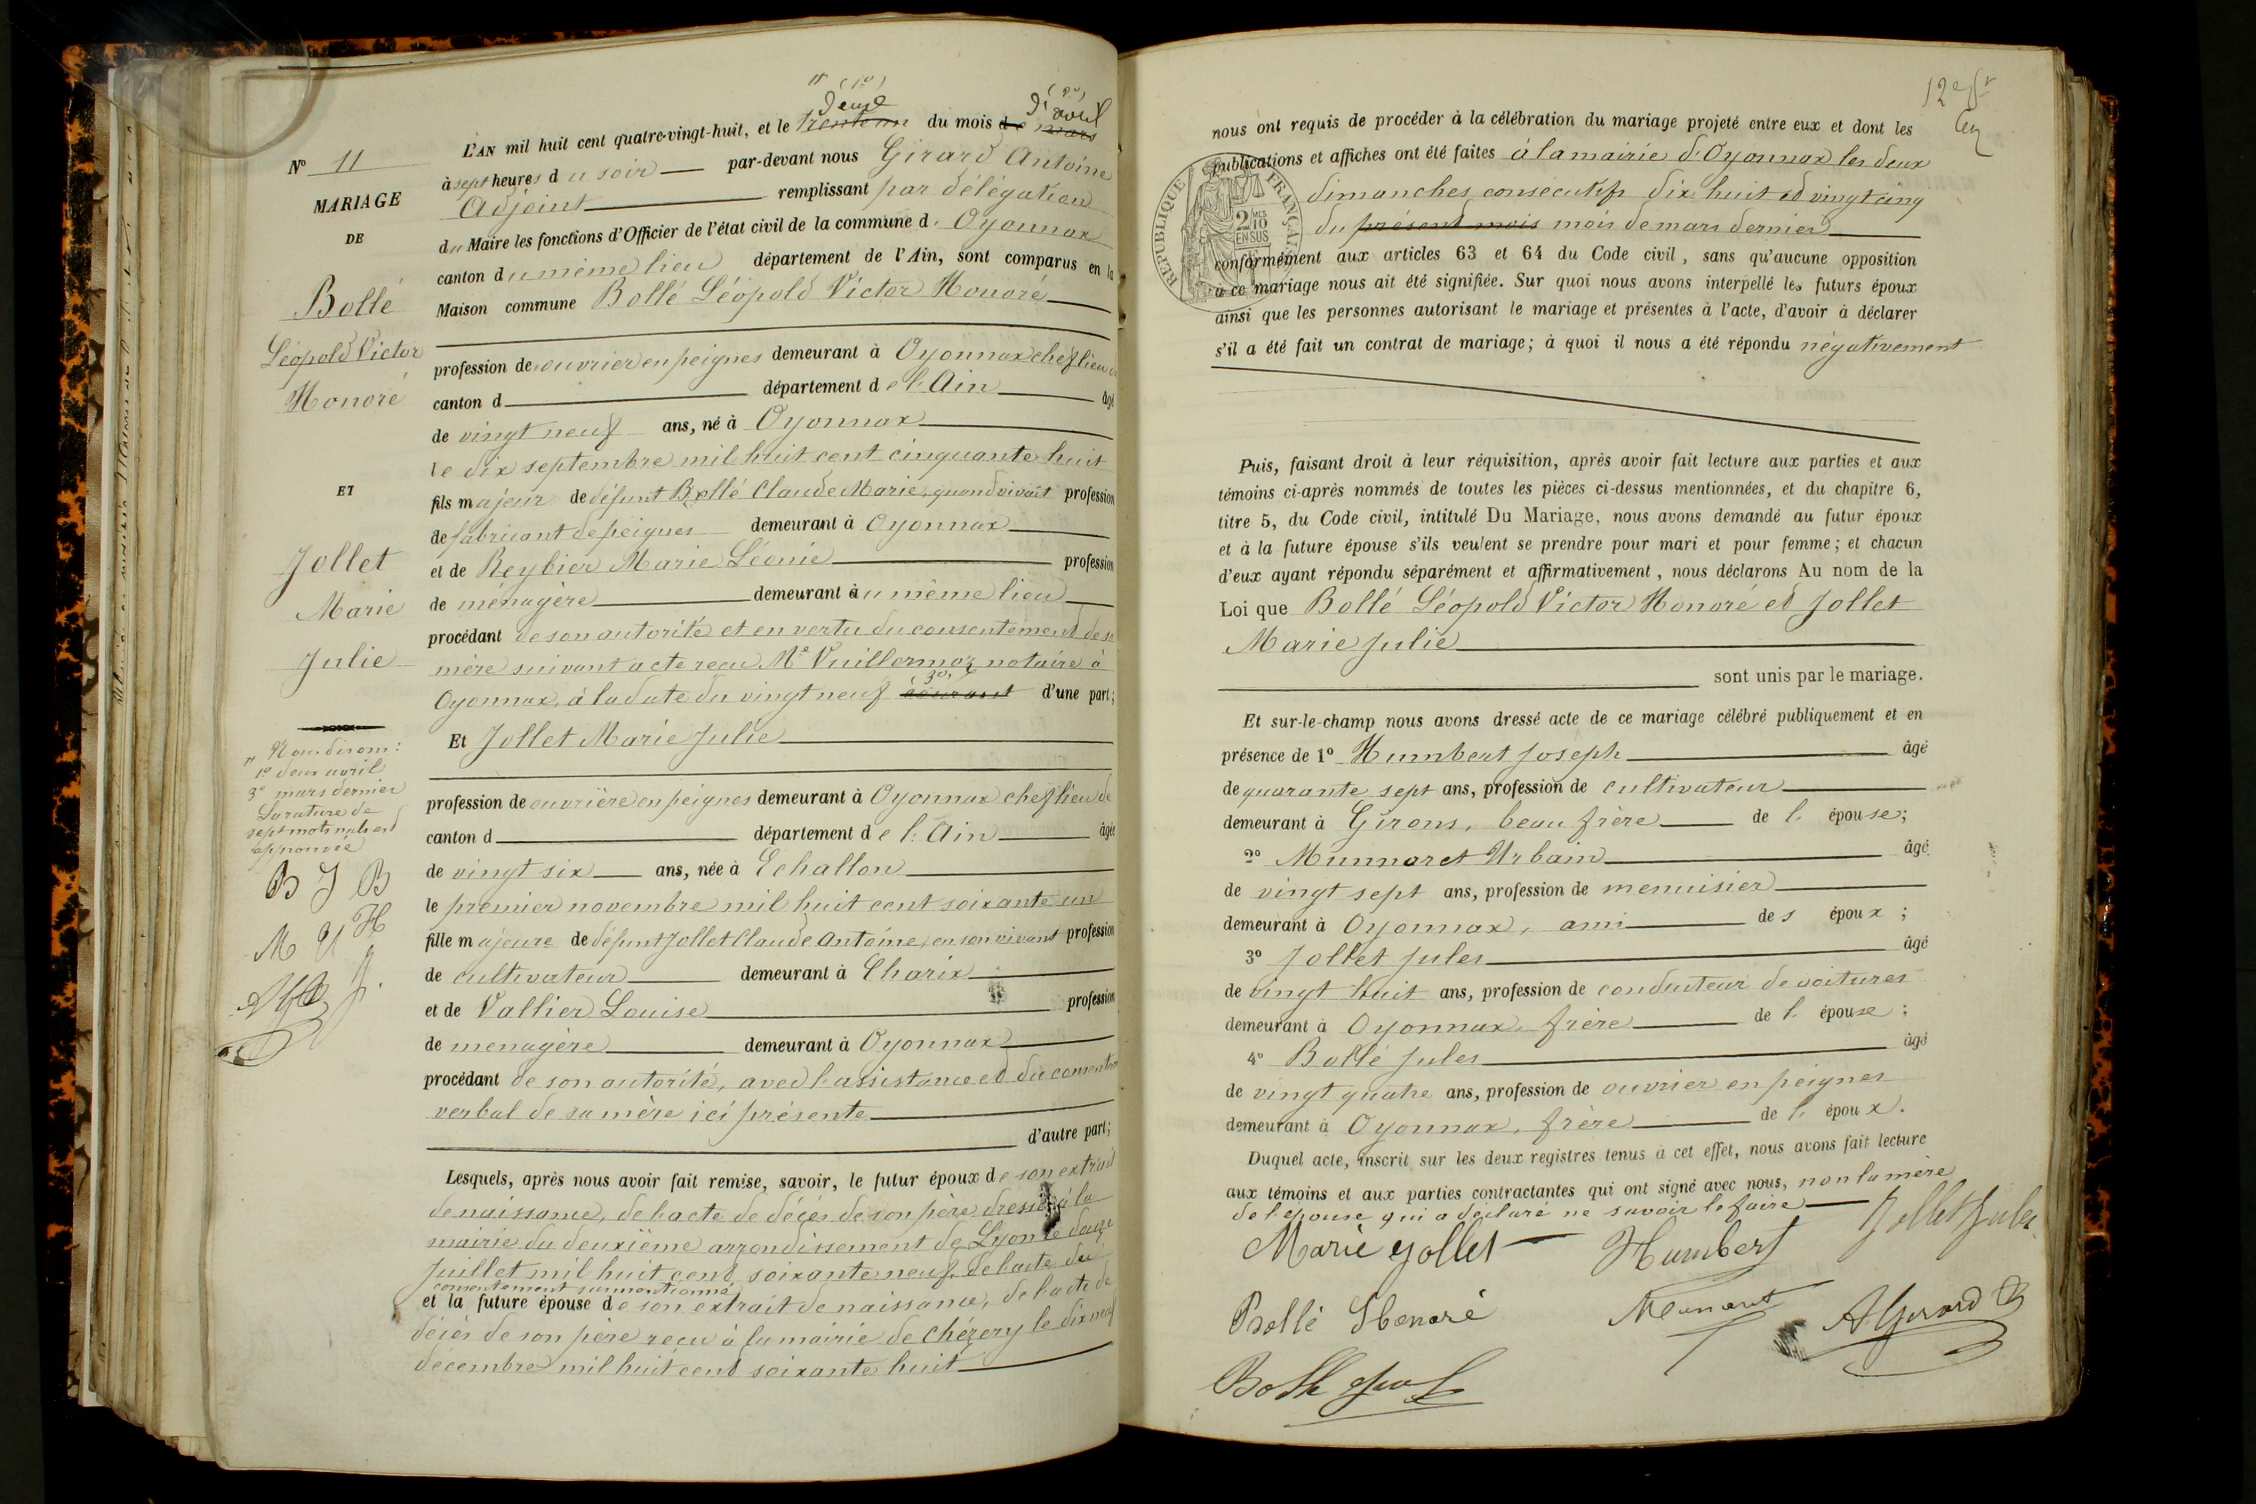 N° 11
MARIAGE
DE
Bollé
Léopold Victor
Honoré
ET
Jollet
Marie
Julie
Nous disons:
1° deux avril
3° mars dernier
La rature de
sept mots nuls est
approuvée
B J B
M U H
L'AN mil huit cent quatre-vingt-huit, et le trente un (1°) deux du mois de mars (2°) d'avril
à sept heures du soir par-devant nous Girard Antoine
Adjoint remplissant par délégation
du Maire les fonctions d'Officier de l'état civil de la commune d'Oyonnax
canton du même lieu département de l'Ain, sont comparus en la
Maison commune Bollé Léopold Victor Honoré
profession de ouvrier en peignes demeurant à Oyonnax chef lieu de
canton d département de l'Ain âgé
de vingt neuf ans, né à Oyonnax
le dix septembre mil huit cent cinquante huit
fils majeur de défunt Bollé Claude Marie, quand vivait profession
de fabricant de peignes demeurant à Oyonnax
et de Reybier Marie Léonie profession
de ménagère demeurant au même lieu
procédant de son autorité et en vertu du consentement de sa
mère suivant acte reçu Me Vuillermoz notaire à
Oyonnax, à la date du vingt neuf courant (3°) d'une part;
Et Jollet Marie Julie
profession de ouvrière en peignes demeurant à Oyonnax chef lieu de
canton d département de l'Ain âgée
de vingt six ans, née à Echallon
le premier novembre mil huit cent soixante un
fille majeure de défunt Jollet Claude Antoine, en son vivant profession
de cultivateur demeurant à Charix
et de Vallier Louise profession
de ménagère demeurant à Oyonnax
procédant de son autorité, avec l'assistance et du consentement
verbal de sa mère ici présente
d'autre part;
Lesquels, après nous avoir fait remise, savoir, le futur époux de son extrait
de naissance, de l'acte de décès de son père dressé à la
mairie du deuxième arrondissement de Lyon le douze
Juillet mil huit cent soixante neuf, de l'acte du
consentement susmentionné
et la future épouse de son extrait de naissance, de l'acte de
décès de son père reçu à la mairie de Chézery le dix neuf
décembre mil huit cent soixante huit
12e
nous ont requis de procéder à la célébration du mariage projeté entre eux et dont les
publications et affiches ont été faites à la mairie d'Oyonnax les deux
dimanches consécutifs dix huit et vingt cinq
du présent mois mois de mars dernier
RÉPUBLIQUE FRANÇAISE
2/10 EN SUS
conformément aux articles 63 et 64 du Code civil, sans qu'aucune opposition
à ce mariage nous ait été signifiée. Sur quoi nous avons interpellé les futurs époux
ainsi que les personnes autorisant le mariage et présentes à l'acte, d'avoir à déclarer
s'il a été fait un contrat de mariage; à quoi il nous a été répondu négativement
Puis, faisant droit à leur réquisition, après avoir fait lecture aux parties et aux
témoins ci-après nommés de toutes les pièces ci-dessus mentionnées, et du chapitre 6,
titre 5, du Code civil, intitulé Du Mariage, nous avons demandé au futur époux
et à la future épouse s'ils veulent se prendre pour mari et pour femme; et chacun
d'eux ayant répondu séparément et affirmativement, nous déclarons Au nom de la
Loi que Bollé Léopold Victor Honoré et Jollet
Marie Julie
sont unis par le mariage.
Et sur-le-champ nous avons dressé acte de ce mariage célébré publiquement et en
présence de 1° Humbert Joseph âgé
de quarante sept ans, profession de cultivateur
demeurant à Girons, beau frère de l'épouse;
2° Munnaret Urbain âgé
de vingt sept ans, profession de menuisier
demeurant à Oyonnax, ami des époux;
3° Jollet Jules âgé
de vingt huit ans, profession de conducteur de voitures
demeurant à Oyonnax, frère de l'épouse;
4° Bollé Jules âgé
de vingt quatre ans, profession de ouvrier en peignes
demeurant à Oyonnax, frère de l'époux.
Duquel acte, inscrit sur les deux registres tenus à cet effet, nous avons fait lecture
aux témoins et aux parties contractantes qui ont signé avec nous, non la mère
de l'épouse qui a déclaré ne savoir le faire
Marie Jollet Humbert Jollet Jules
Bollé Honoré Munaret AGirard
Bollé Jules